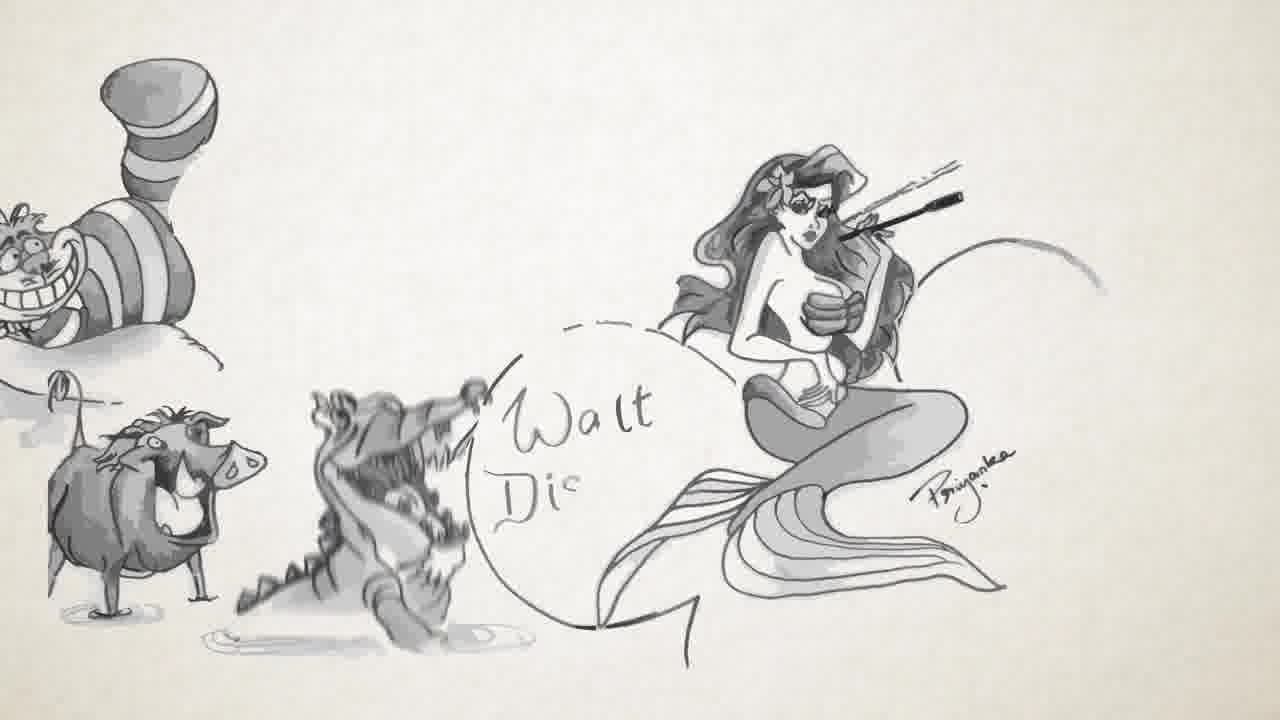 Walt
Dis
Priyanka